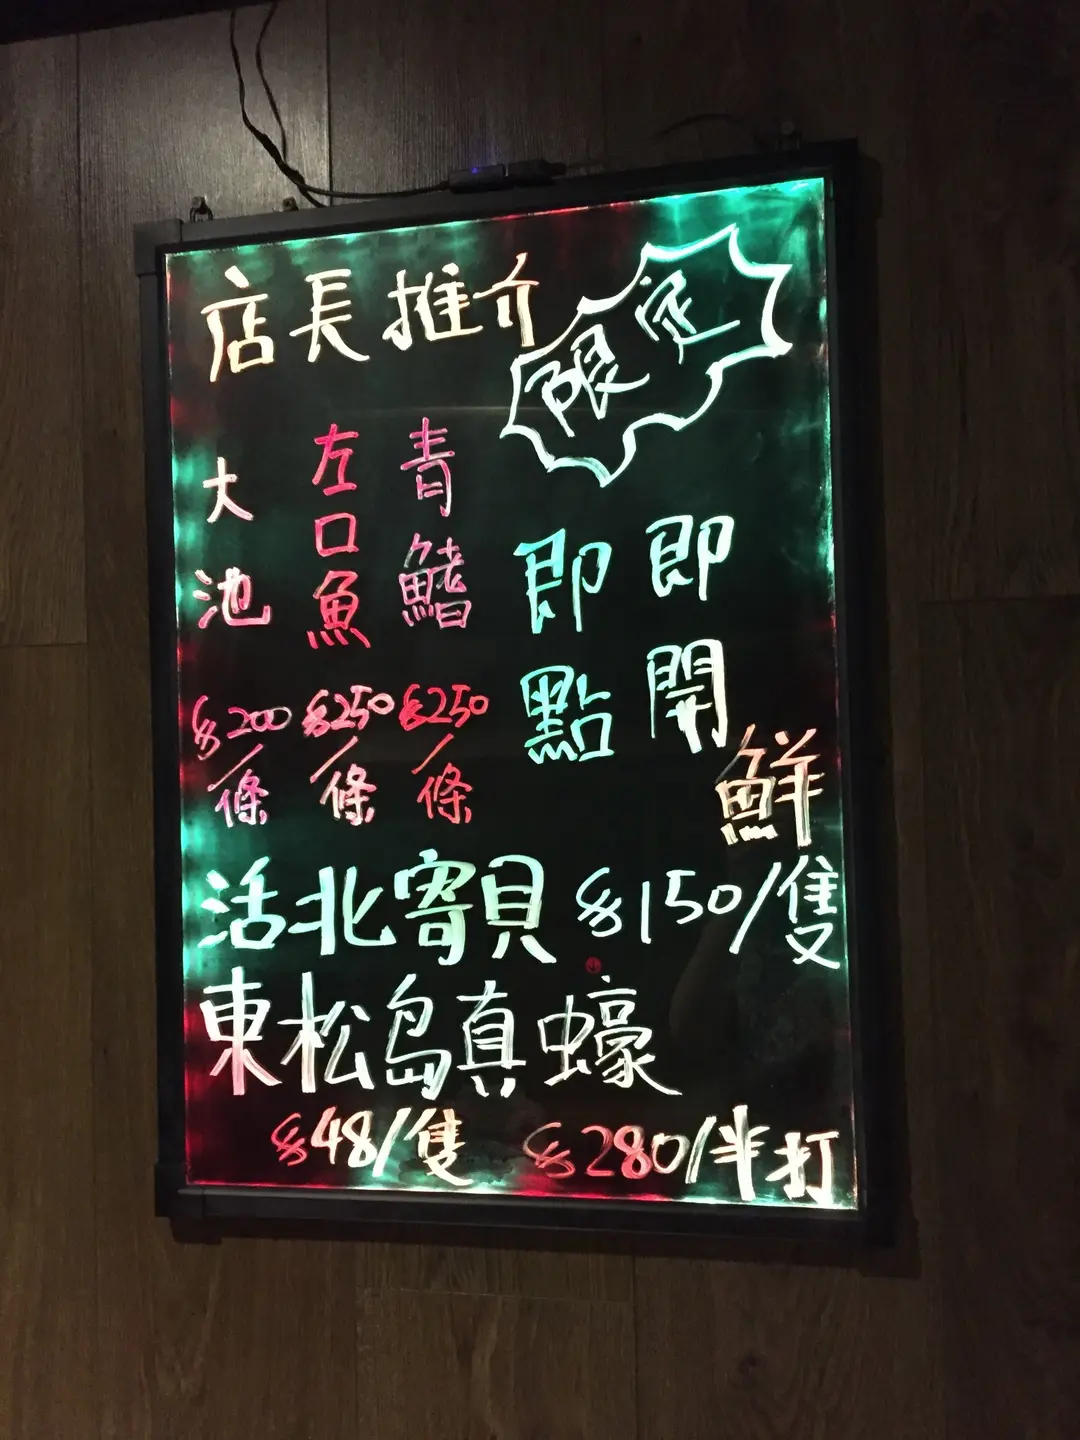 店長推介
限定
大池
$200/條
左口魚
$250/條
青鰭
$250/條
即點
即開
鮮
活北寄貝 $150/隻
東松島真蠔
$48/隻 $280/半打